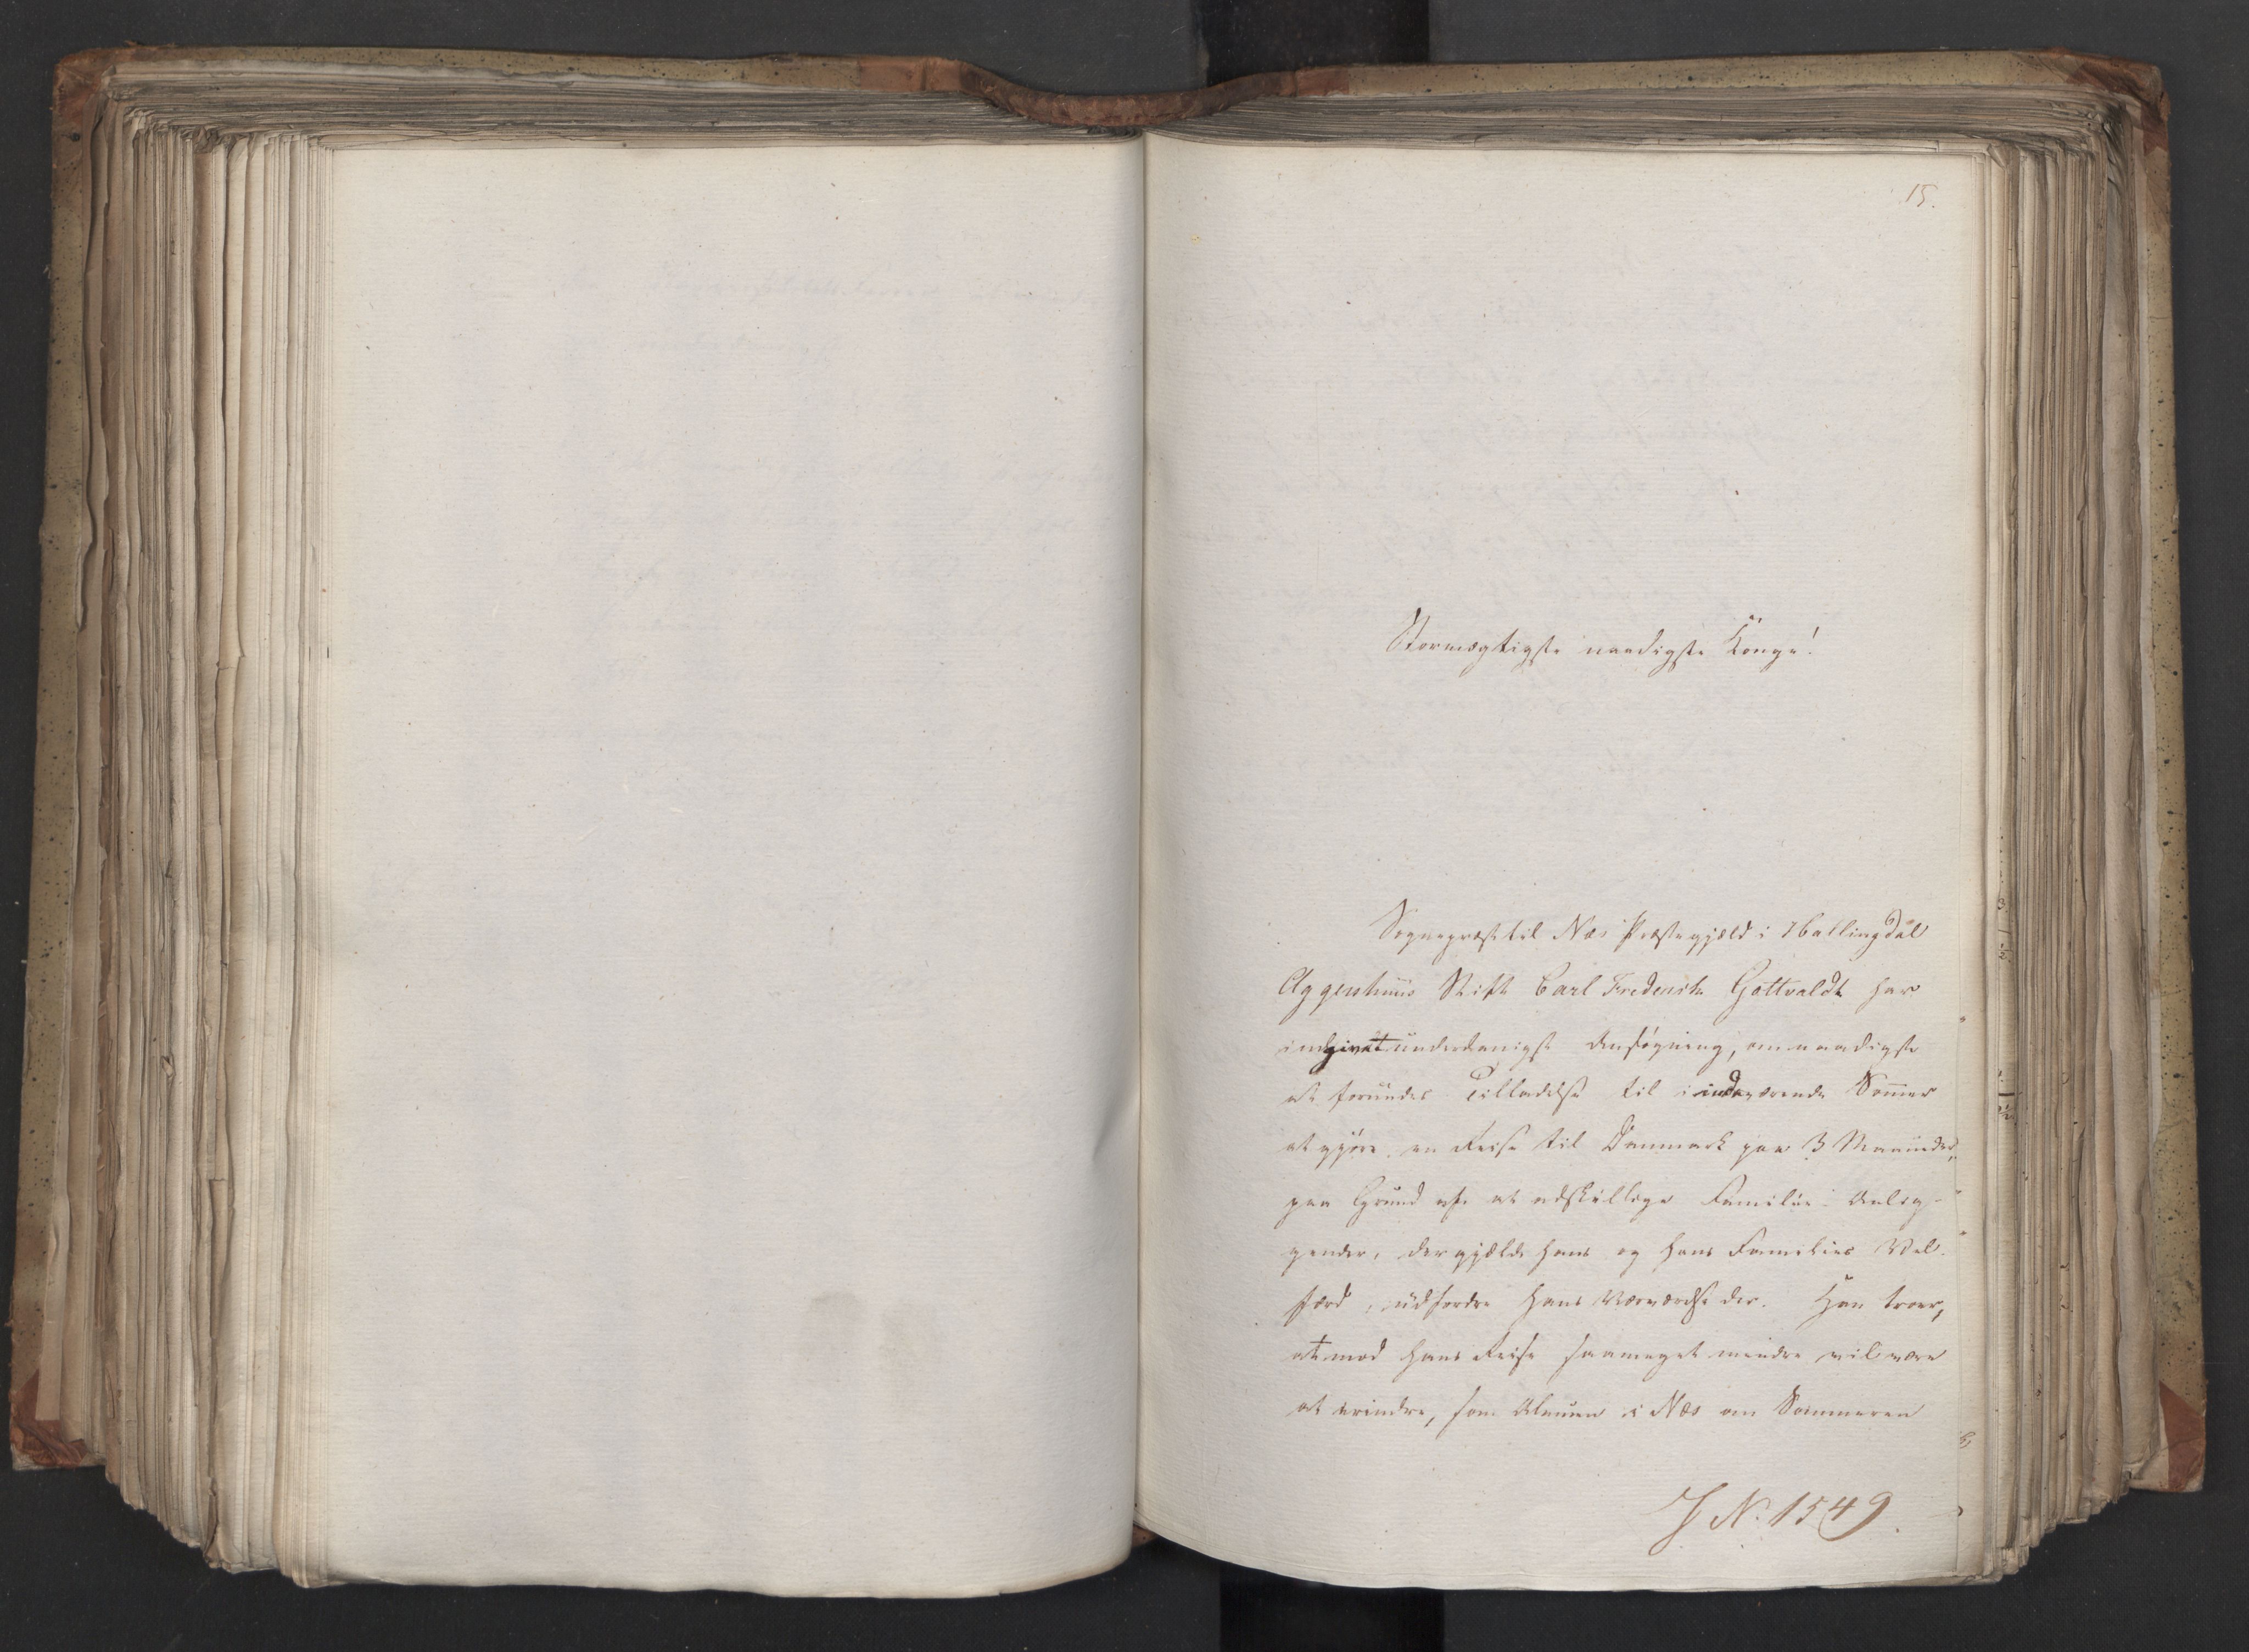 15.
Stormægtigste naadigste Konge!
Sognepræst til Næs Præstegjæld i Hallingdal
Aggershuus Stift Carl Frederik Gottvaldt har
indgivet underdanigst Ansøgning, om naadigst
at forundes Tilladelse til i indeværende Sommer
at gjøre en Reise til Danmark paa 3 Maaneder,
paa Grund af at adskillige Familie-Anlig-
gender, der gjælde hans og hans Families Vel-
færd, udfordre hans Nærværelse der. Han troer,
at mod hans Reise saameget mindre vil være
at erindre, som Almuen i Næs om Sommeren
J N. 1549.